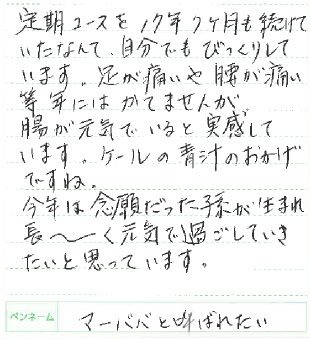 定期コースを17年7ヶ月も続けて
いたなんて、自分でもびっくりして
います。足が痛いや腰が痛い
等年にはかてませんが、
腸が元気でいると実感して
います。ケールの青汁のおかげ
ですね。
今年は念願だった孫が生まれ
長〜く元気で過ごしていき
たいと思っています。
ペンネーム マーババと呼ばれたい